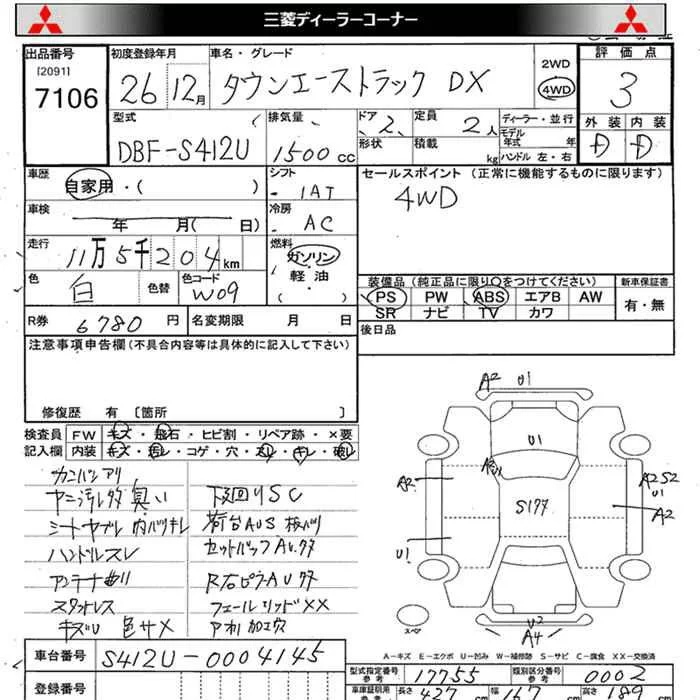 三菱ディーラーコーナー
出品番号 初度登録年月 車名・グレード 2WD 評価点
[2091]
7106 26 12月 タウンエーストラック DX 4WD 3
型式 排気量 ドア 定員 ディーラー・並行 外装 内装
DBF-S412U 1500cc 2 2人 モデル年式 年 D D
形状 積載 kg ハンドル 左・右
車歴 シフト セールスポイント(正常に機能するものに限ります)
自家用・( ) IAT 4WD
車検 冷房
年 月( 日) AC
走行 燃料
11万5千204km ガソリン
軽油
色 色替 色コード
白 W09 ( )
装備品(純正品に限り○をつけてください) 新車保証書
PS PW ABS エアB AW 有・無
SR ナビ TV カワ
R券 6780円 名変期限 月 日 後日品
注意事項申告欄(不具合内容等は具体的に記入して下さい)
修復歴 有 [箇所 ]
検査員 FW キズ・飛石・ヒビ割・リペア跡・×要
記入欄 内装
ヤニ汚レタタ 臭い 下廻りSC
ハンドルスレ
R右ピラーAUタタ
キズU 色サメ アオリ加工穴
A2 U1
U1
A2 S177 A2S2
U1
A2
U1
U2
A4
スペア
A-キズ E-エクボ U-凹み W-補修跡 S-サビ C-腐食 XX-交換済
車台番号 S412U-0004145
型式指定番号 参考 17755 類別区分番号 参考 0002
登録番号 車庫証明用 参考 長さ 427 幅 167 高さ 189